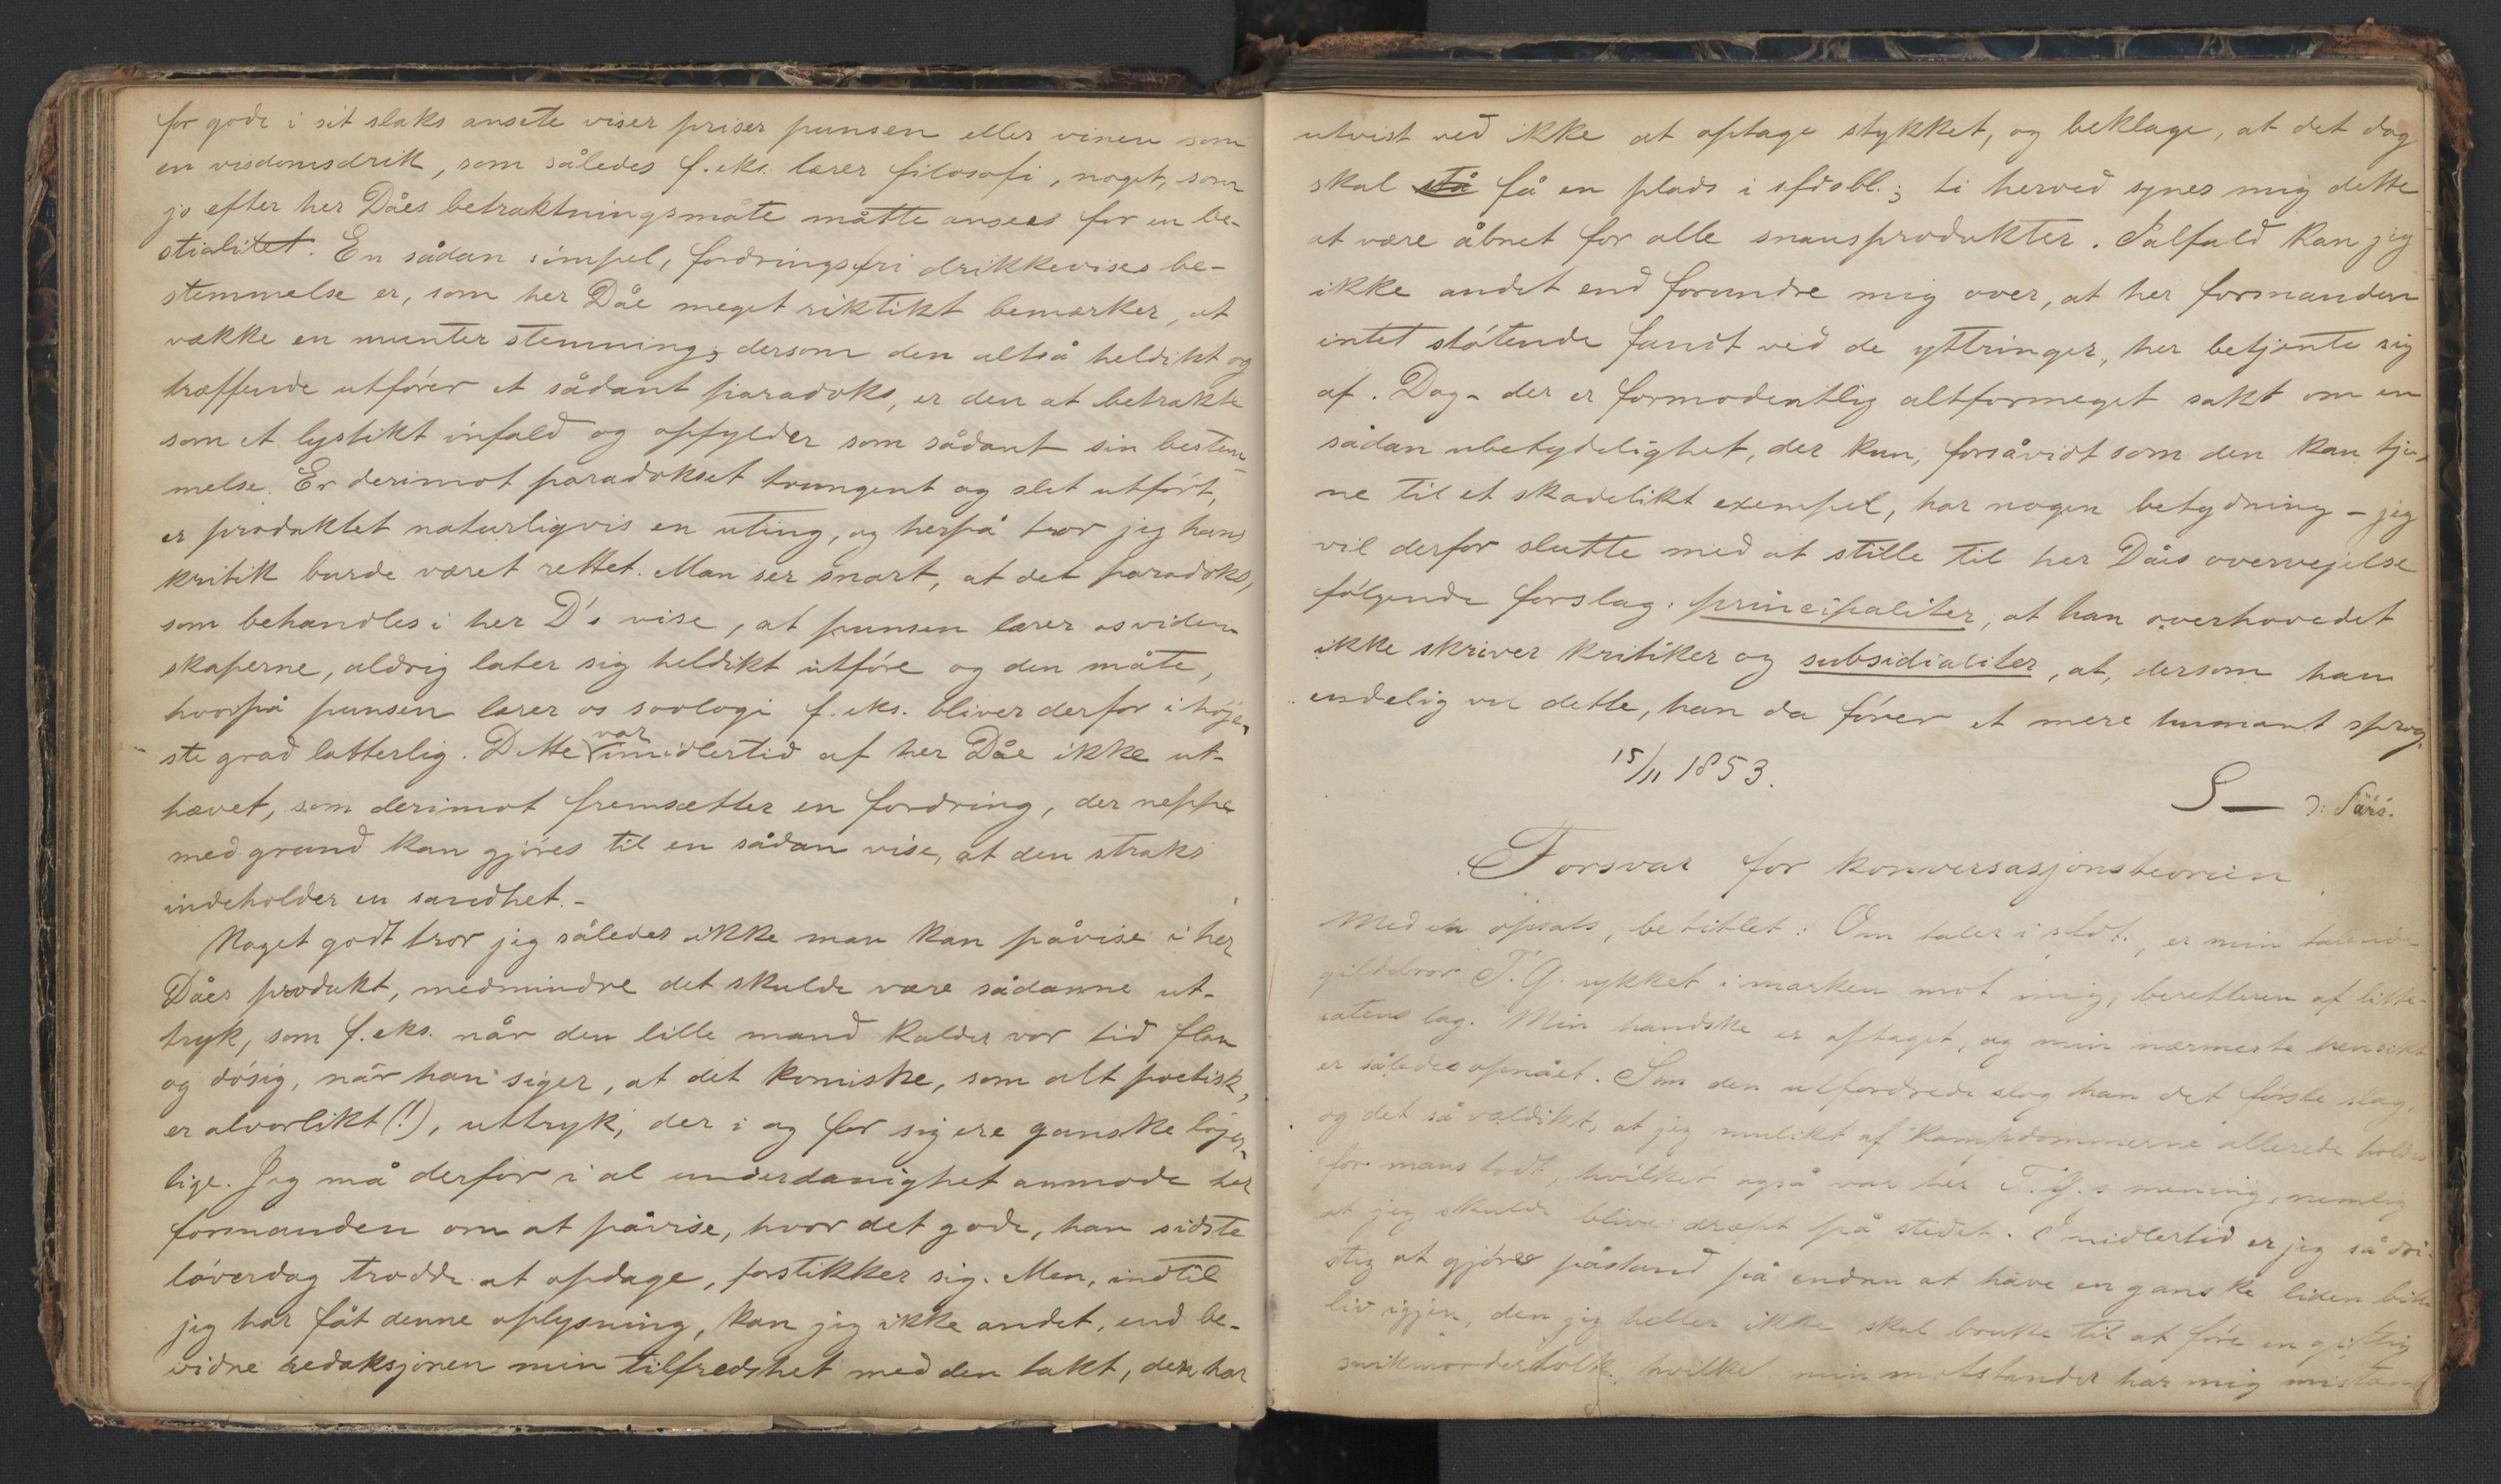 for gode i sit slaks ansete viser priser punsen eller vinen som
en visdomsdrik, som således f. eks. lærer filosofi, noget, som
jo efter her Dåes betraktningsmåte måtte ansees for en be-
stialitet. En sådan simpel, fordringsfri drikkevises be-
stemmelse er, som her Dåe meget riktikt bemærker, at
vække en munter stemning; dersom den altså heldikt og
træffende utfører et sådant paradoks, er den at betrakte
som et lystikt infald og opfylder som sådant sin bestem-
melse. Er derimot paradokset tvungent og slet utført,
er produktet naturligvis en uting, og herpå tror jeg hans
kritik burde været rettet. Man ser snart, at det paradoks,
som behandles i her D's vise, at punsen lærer os viden-
skaperne, aldrig later sig heldikt utføre og den måte,
hvorpå punsen lærer os soologi f. eks. bliver derfor i høje-
ste grad latterlig. Dette var imidlertid af her Dåe ikke ut-
hævet, som derimot fremsætter en fordring, der neppe
med grund kan gjøres til en sådan vise, at den straks
indeholder en sandhet. -
Noget godt tror jeg således ikke man kan påvise i her
Dåes produkt, medmindre det skulde være sådanne ut-
tryk, som f. eks. når den lille mand kalder vor tid flau
og døsig, når han siger, at det komiske, som alt poetisk,
er alvorlikt (!), uttryk, der i og for sig ere ganske løjer-
lige. Jeg må derfor i al underdanighet anmode her
formanden om at påvise, hvor det gode, han sidste
løverdag trodde at opdage, forstikker sig. Men, indtil
jeg har fåt denne oplysning, kan jeg ikke andet, end be-
vidne redaksjonen min tilfredshet med den takt, den har
utvist ved ikke at optage stykket, og beklage, at det dog
skal stå få en plads i sfdsbl.; ti herved synes mig dette
at være åbnet for alle snausprodukter. Ialfald kan jeg
ikke andet end forundre mig over, at her formanden
intet støtende fandt ved de yttringer, her betjente sig
af. Dog - der er formodentlig altformeget sakt om en
sådan ubetydelighet, der kun, forsåvidt som den kan tje-
ne til et skadelikt exempel, har nogen betydning - jeg
vil derfor slutte med at stille til her Dåes overvejelse
følgende forslag: principaliter, at han overhovedet
ikke skriver kritiker og subsidialiter, at, dersom han
endelig vil dette, han da fører et mere humant sprog.
15/11 1853.
S— ɔ: Sars.
Forsvar for konversasjonsteorien.
Med en opsats, betitlet: Om taler i sfdt., er min talende
gildebror T. G. rykket i marken mot mig, beretteren af litte-
ratens lag. Min handske er optaget, og min nærmeste hensikt
er således opnået. Som den utfordrede slog han det første slag,
og det så vældikt, at jeg mulikt af kampdommerne allerede holdes
for mans todt, hvilket også var her T. G.s mening, nemlig
at jeg skulde blive dræpt på stedet. Imidlertid er jeg så dri-
stig at gjøre påstand på endnu at have en ganske liden bite
liv igjen, den jeg heller ikke skal bruke til at føre en giftig
snikmorderdolk, hvilket min motstander har mig mistænkt